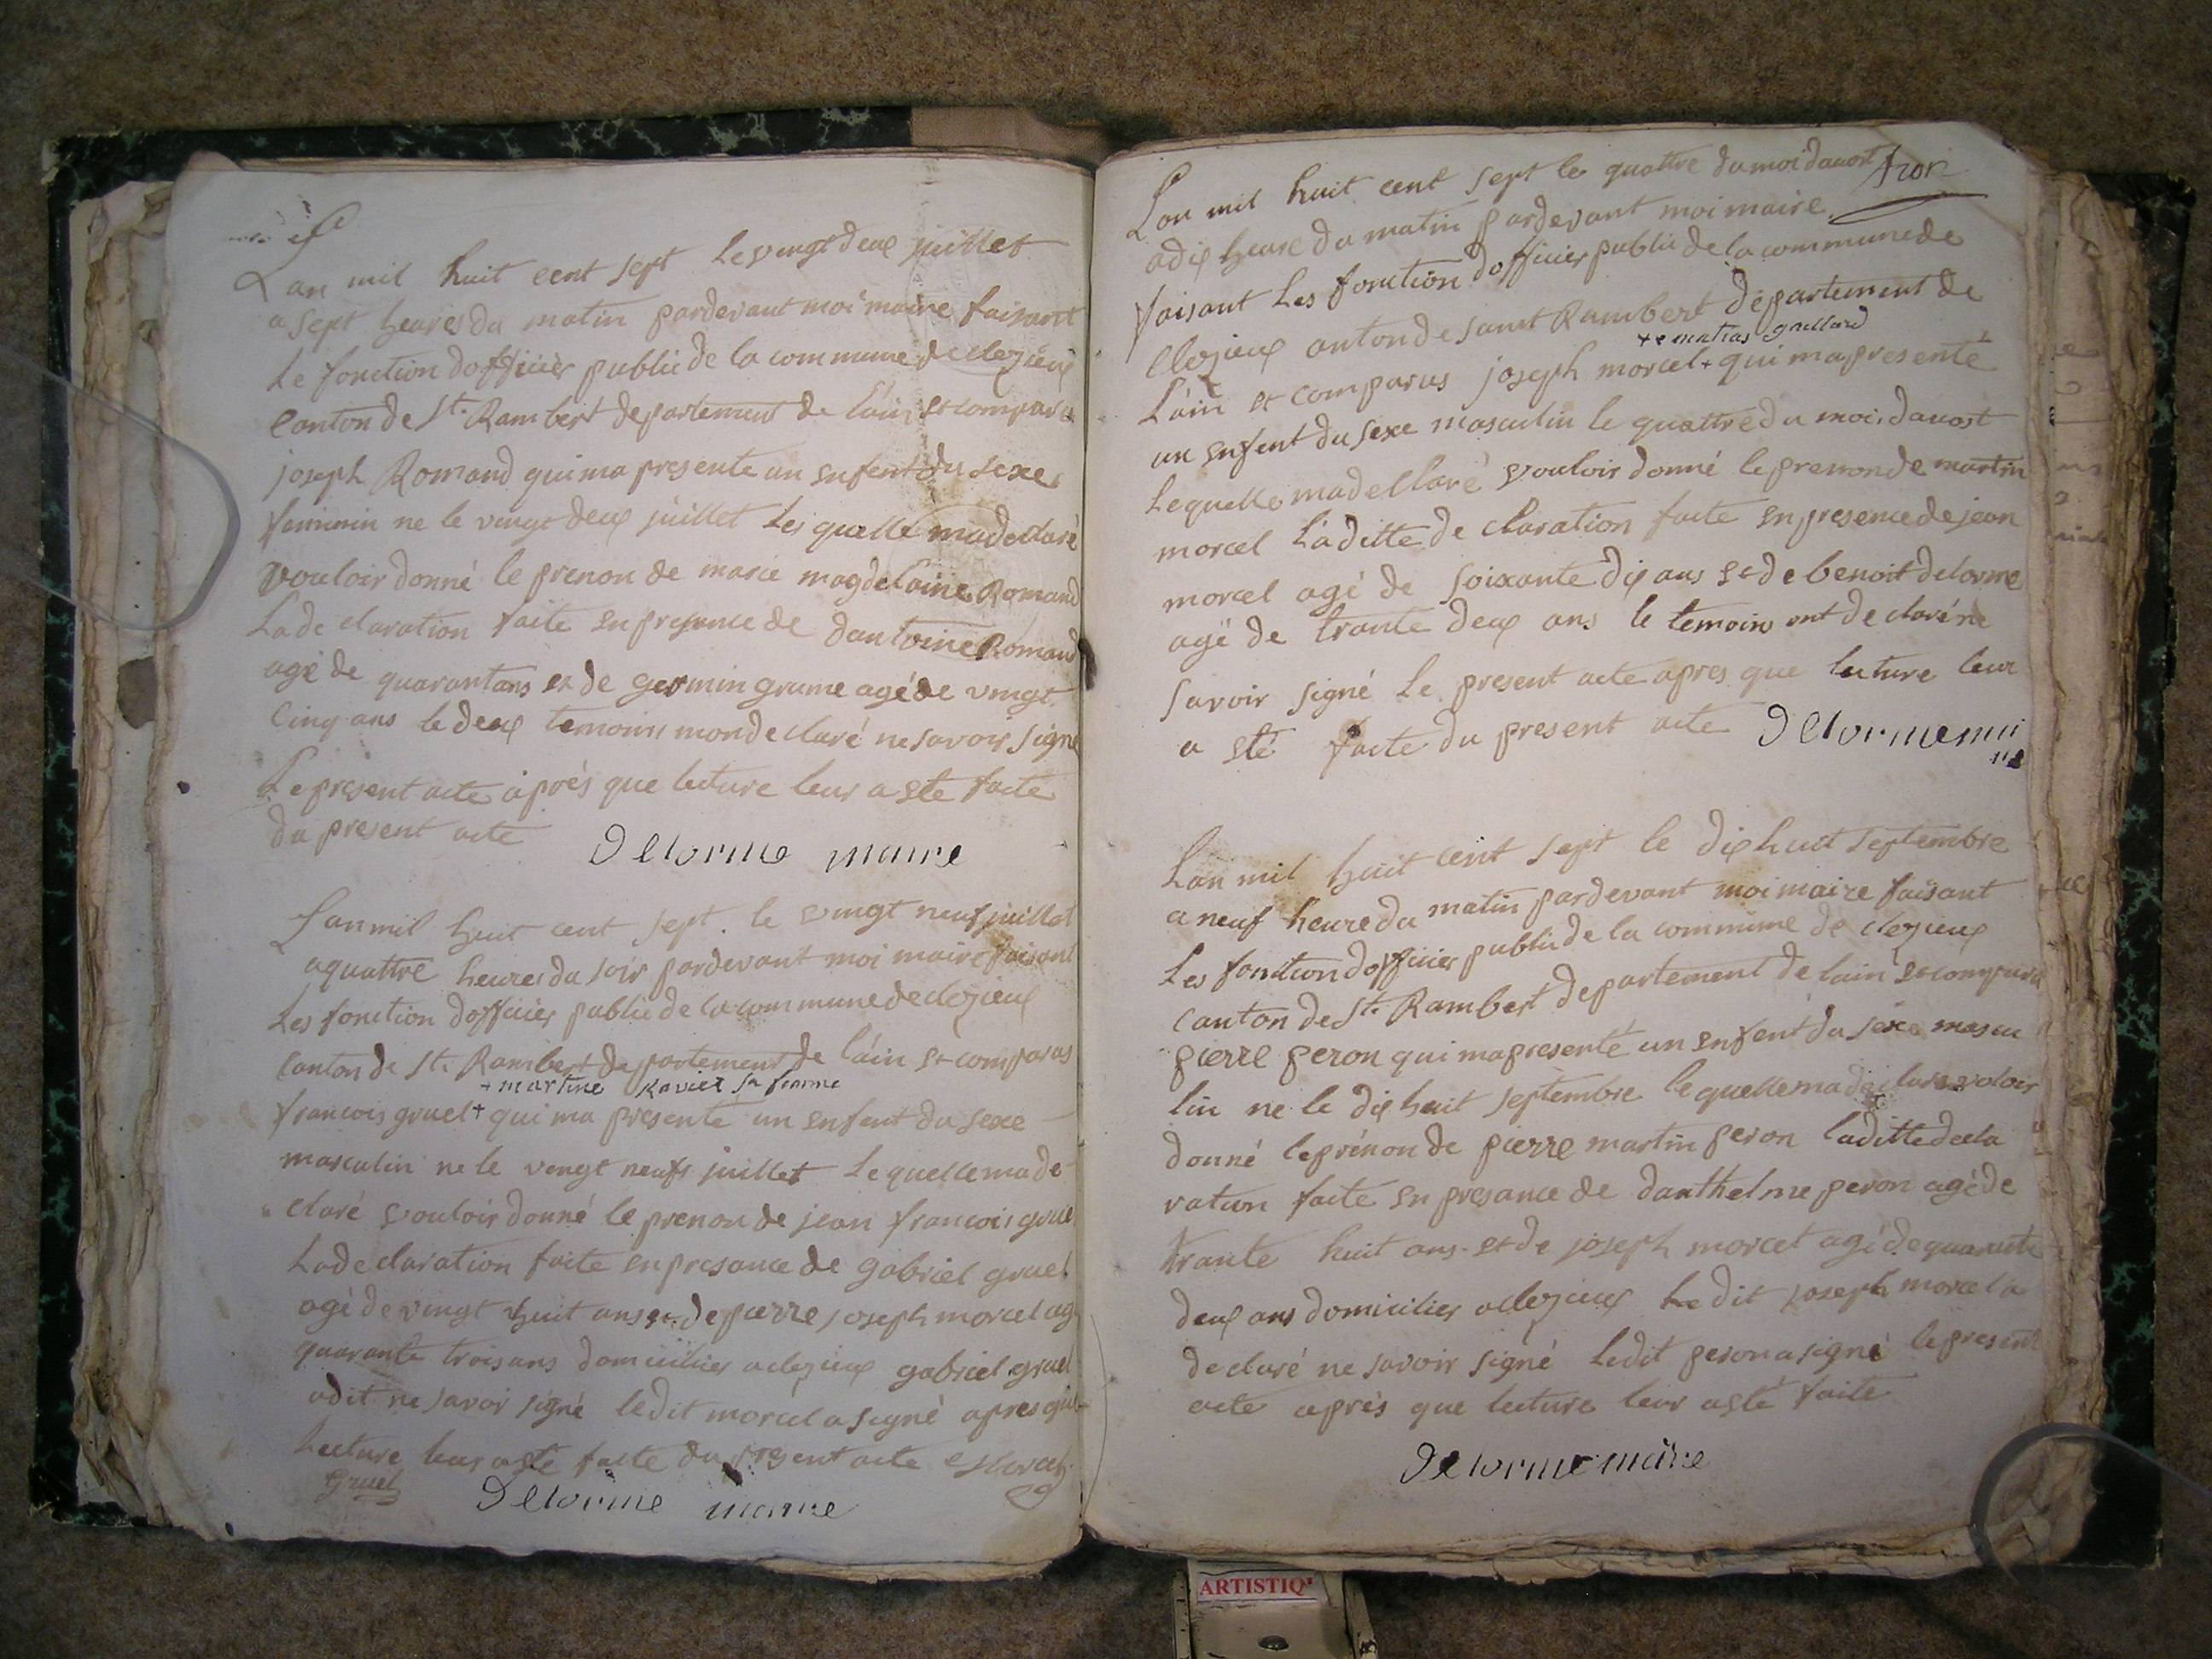 Lan mil huit cent sept le vingt deux juillet
a sept heures du matin pardevant moi maire faisant
le fonction dofficier public de la commune de clezieux
canton de St. Rambert departement de l'áin et comparu
joseph Romand qui ma presente un enfent du sexe
feminin ne le vingt deux juillet les quelle ma declaré
vouloir donné le prenon de marie magdelaine Romand
La de claration faite en presence de dantoine Romand
agé de quarantans et de germin grume agé de vingt
cinq ans le deux temoins mon de claré ne savoir signé
Le present acte après que lecture leur a ete faite
du present acte
Delorme maire
Lan mil huit cent sept. le vingt neuf juillet
a quattre heures du soir pardevant moi maire faisant
les fonction dofficier public de la commune de clezieux
canton de St. Rambert departement de láin et comparus
+ martine Ravier sa femme
francois gruel + qui ma presente un enfent du sexe
masculin ne le vingt neufs juillet le quelle ma de
claré vouloir donné le prenon de jean francois gruel
La de claration faite en presance de gabriel gruel
agé de vingt huit ans et de pierre joseph morcel ag
quarante trois ans domicilier a clezieux gabriel gruel
a dit ne savoir signé le dit morcel a signé apres que
lecture leur a eté faite du present acte Morcel
gruel
Delorme maire
Lan mil huit cent sept le quattre du moi daoust
a dix heure du matin pardevant moi maire
faisant les fonction dofficier public de la commune de
Clezieux canton de saint Rambert département de
+ e matias gaillard
L'áin et comparus joseph morcel + qui ma presenté
un enfent du sexe masculin le quattre du mois daoust
Lequelle ma dellaré vouloir donné le prenon de martin
morcel Láditte de claration faite en presence de jean
morcel agé de soixante dix ans et de benoit delorme
agé de trante deux ans le temoins ont de claré ne
savoir signé le present acte apres que lecture leur
a eté faite du present acte Delorme mai
re
Lan mil huit cent sept le dix huit septembre
a neuf heure du matin pardevant moi maire faisant
Les fonction dofficier public de la commune de clezieux
canton de St. Rambert departement de lain et comparu
pierre peron qui ma presenté un enfent du sexe mascu
lin ne le dix huit septembre le quelle ma declaré voloir
donné le prénon de pierre martin peron laditte decla
ration faite en presance de danthelme peron agé de
trante huit ans. et de joseph morcel agé de quarante
deux ans domicilier a clezieux le dit joseph morcel a
de claré ne savoir signé ledit peron a signé le present
acte après que lecture leur a eté faite
Delorme maire
ARTISTIQ'